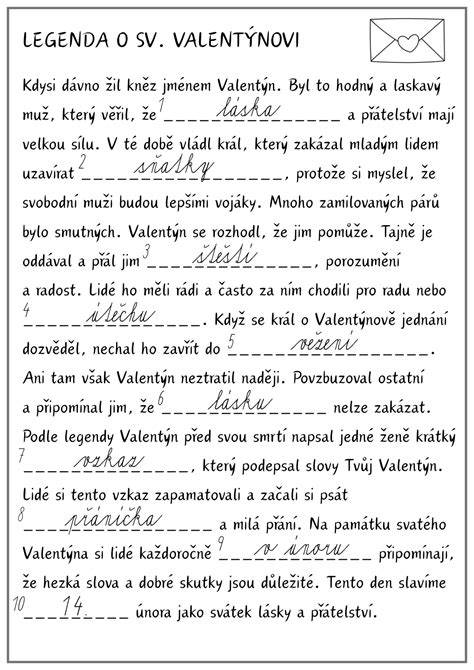 LEGENDA O SV. VALENTÝNOVI
Kdysi dávno žil kněz jménem Valentýn. Byl to hodný a laskavý
muž, který věřil, že 1 láska a přátelství mají
velkou sílu. V té době vládl král, který zakázal mladým lidem
uzavírat 2 sňatky, protože si myslel, že
svobodní muži budou lepšími vojáky. Mnoho zamilovaných párů
bylo smutných. Valentýn se rozhodl, že jim pomůže. Tajně je
oddával a přál jim 3 štěstí, porozumění
a radost. Lidé ho měli rádi a často za ním chodili pro radu nebo
4 útěchu. Když se král o Valentýnově jednání
dozvěděl, nechal ho zavřít do 5 vežení.
Ani tam však Valentýn neztratil naději. Povzbuzoval ostatní
a připomínal jim, že 6 lásku nelze zakázat.
Podle legendy Valentýn před svou smrtí napsal jedné ženě krátký
7 vzkaz, který podepsal slovy Tvůj Valentýn.
Lidé si tento vzkaz zapamatovali a začali si psát
8 přáníčka a milá přání. Na památku svatého
Valentýna si lidé každoročně 9 v únoru připomínají,
že hezká slova a dobré skutky jsou důležité. Tento den slavíme
10 14. února jako svátek lásky a přátelství.